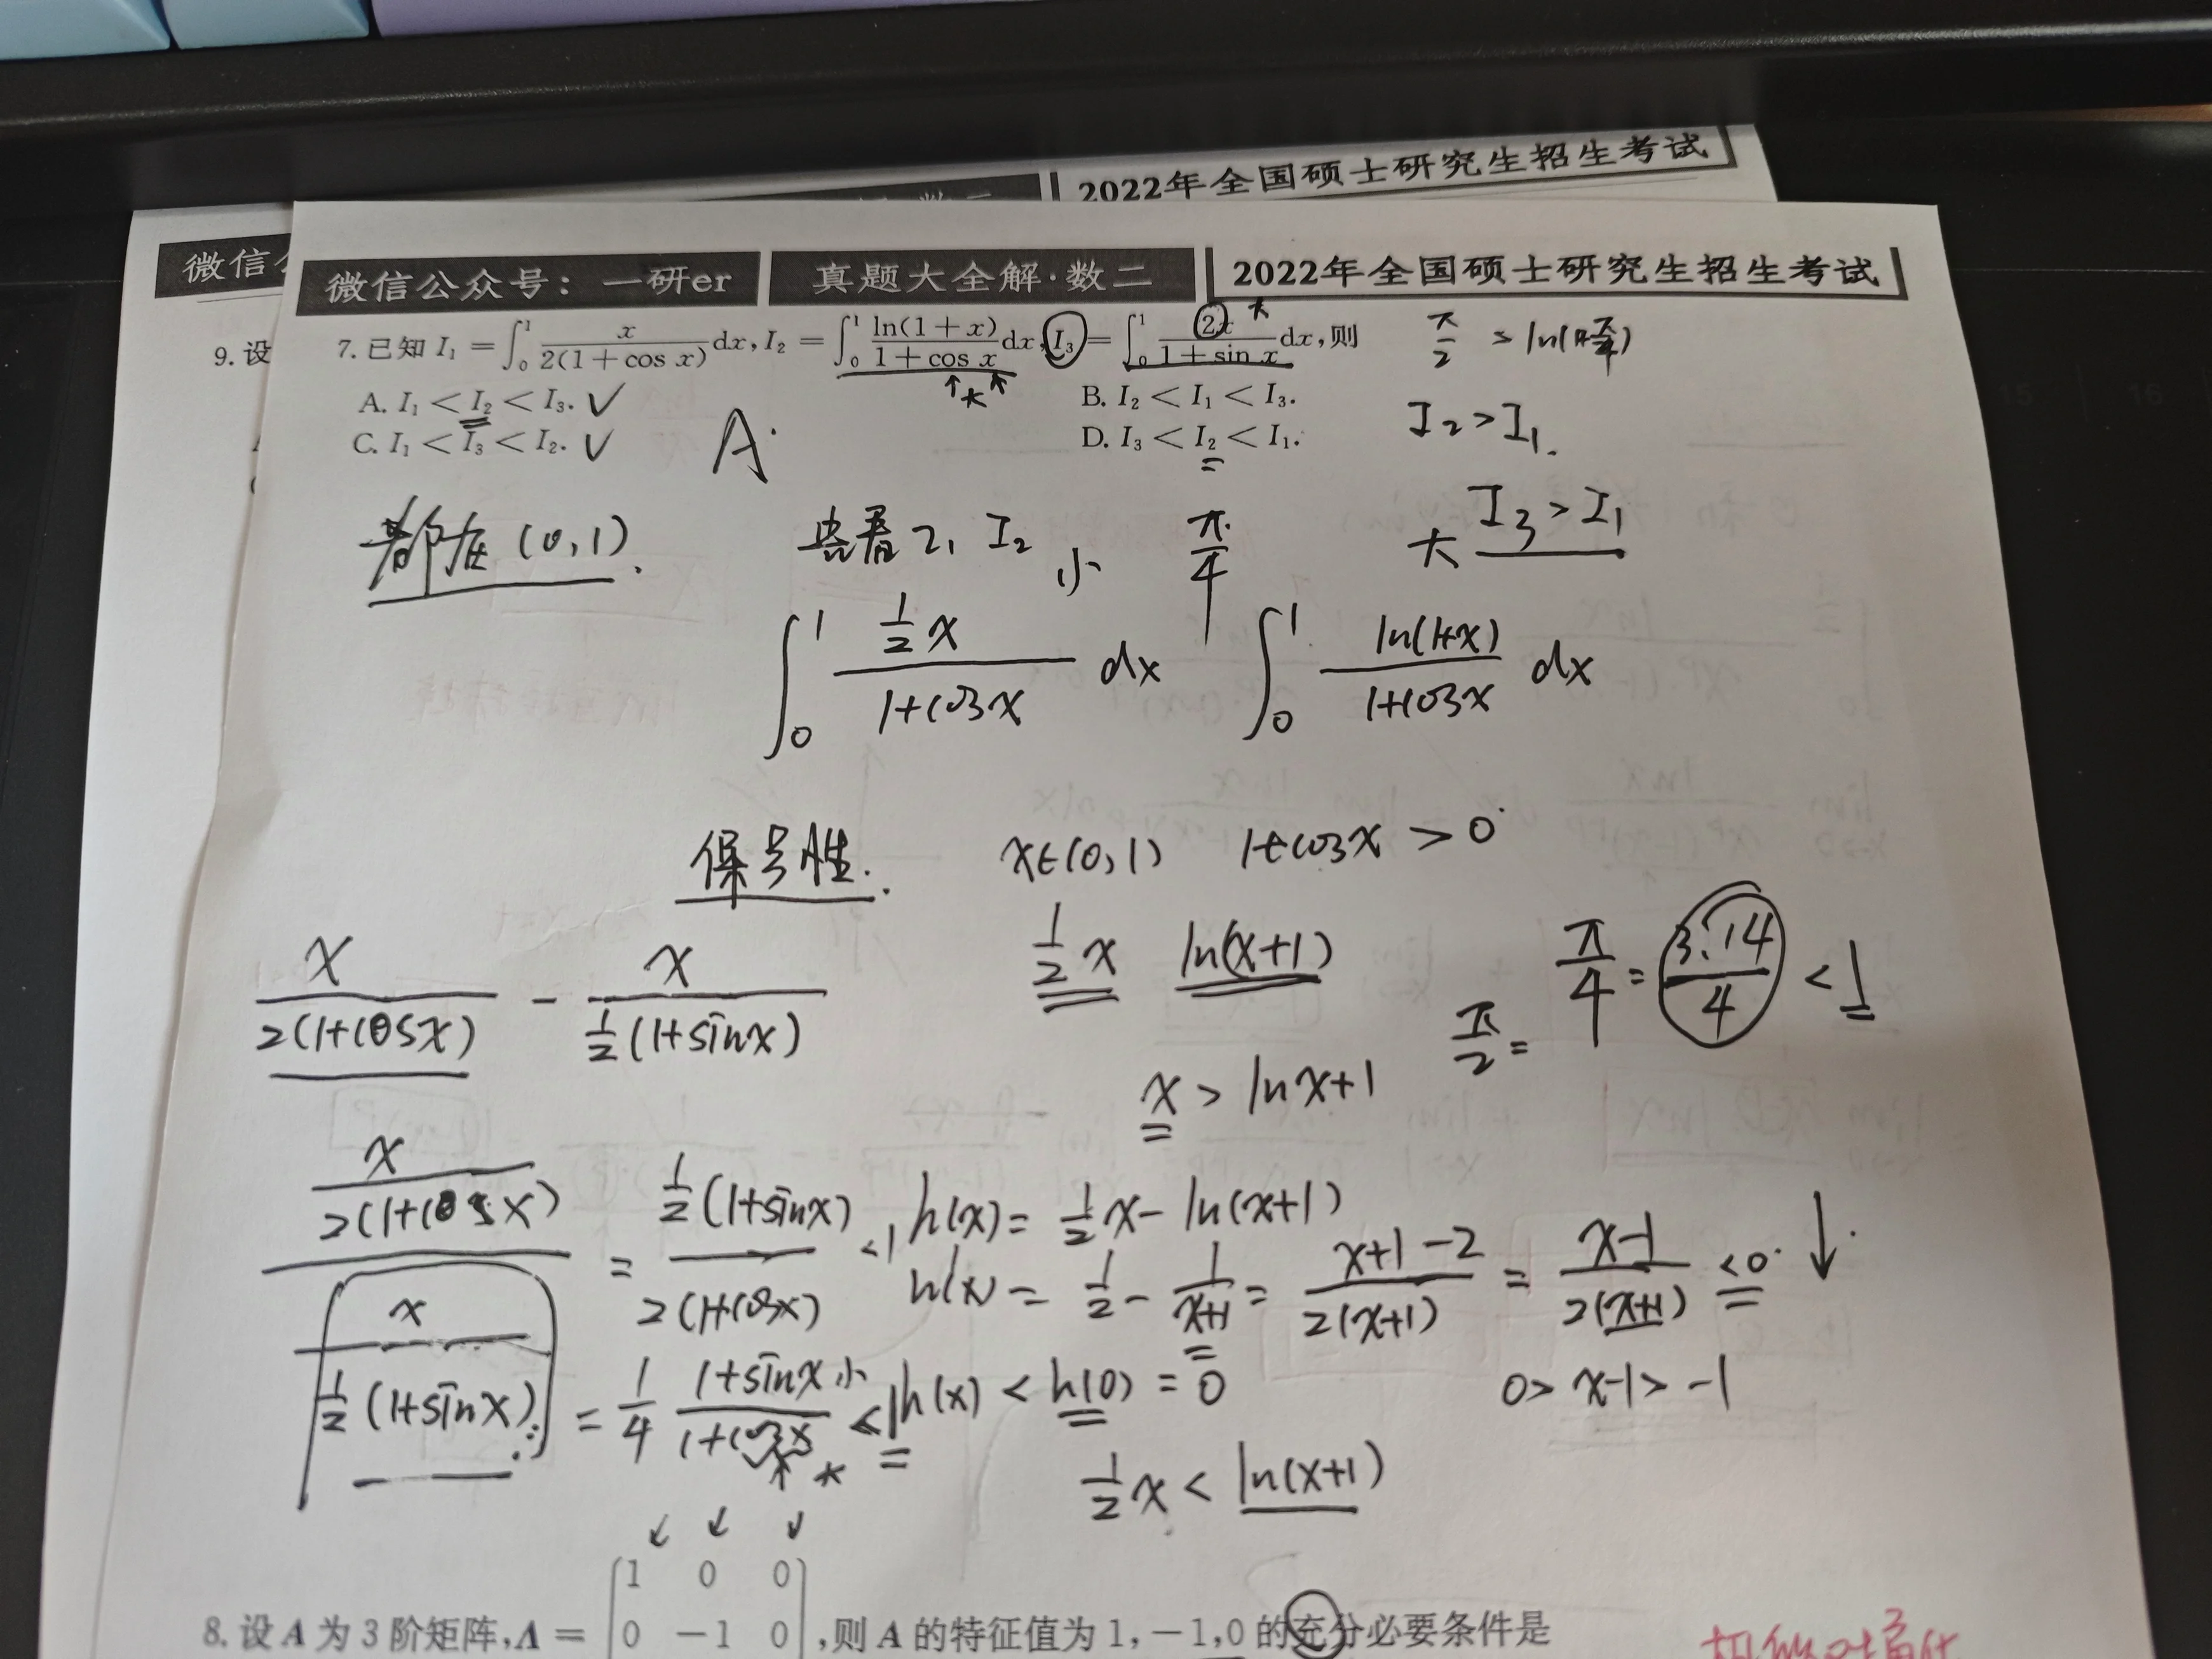 2022年全国硕士研究生招生考试
微信公众号：一研er 真题大全解·数二 2022年全国硕士研究生招生考试
微信
9.设
7.已知 I₁ = ∫₀¹ x/(2(1+cos x)) dx, I₂ = ∫₀¹ ln(1+x)/(1+cos x) dx, I₃ = ∫₀¹ 2x/(1+sin x) dx, 则
大
π/2 > ln(1+π/4)
A. I₁ < I₂ < I₃. ✓ B. I₂ < I₁ < I₃.
↑大
C. I₁ < I₃ < I₂. ✓ D. I₃ < I₂ < I₁.
A.
I₂ > I₁.
都在 (0,1).
看 I₁ I₂ 小 π/4
大 I₃ > I₁
∫₀¹ (1/2 x)/(1+cosx) dx ∫₀¹ ln(1+x)/(1+cosx) dx
保号性. x∈(0,1) 1+cosx > 0
x/(2(1+cosx)) - x/(1/2(1+sinx))
1/2 x ln(x+1)
π/4 = 3.14/4 < 1
π/2 =
x > lnx+1
(x/(2(1+cosx)))/(x/(1/2(1+sinx))) = (1/2(1+sinx))/(2(1+cosx)) <1
= 1/4 (1+sinx)/(1+cosx) <1
小
大
h(x) = 1/2 x - ln(x+1)
h'(x) = 1/2 - 1/(x+1) = (x+1-2)/(2(x+1)) = (x-1)/(2(x+1)) <0 ↓
h(x) < h(0) = 0 0> x-1> -1
1/2 x < ln(x+1)
↙ ↓ ↓
1 0 0
8.设 A 为 3 阶矩阵, Λ = 0 -1 0 , 则 A 的特征值为 1, -1, 0 的充分必要条件是